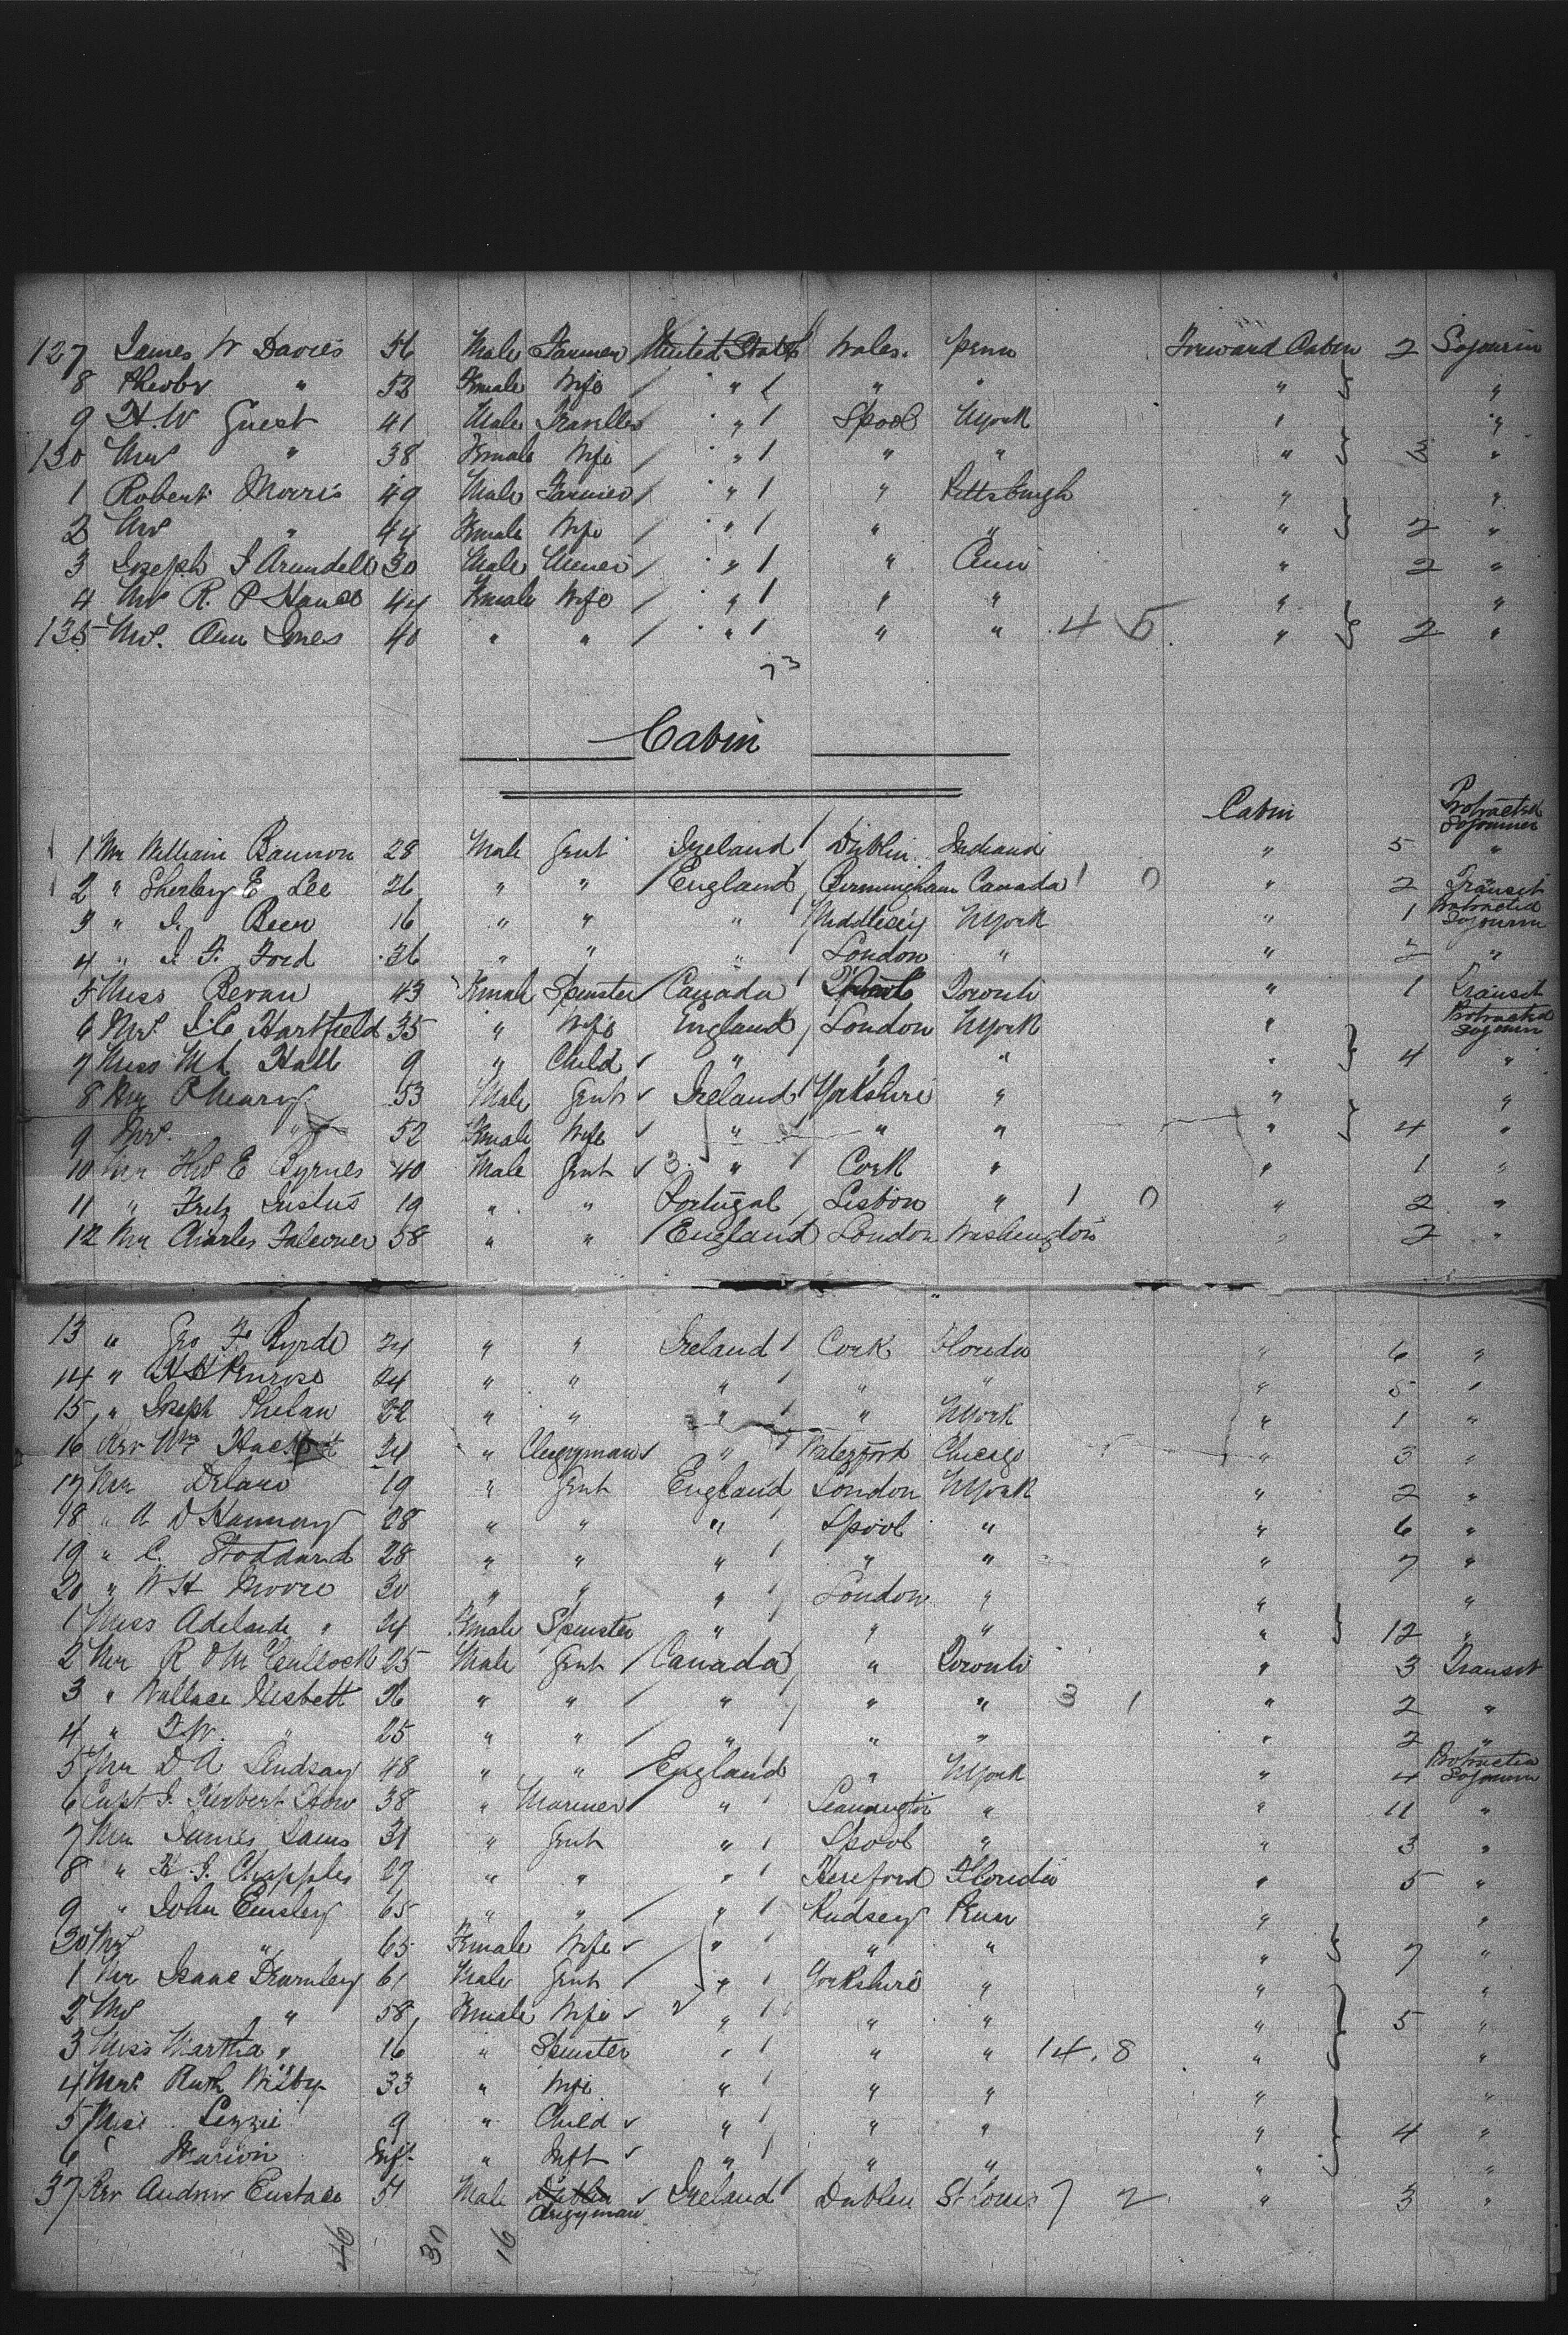 127 James W Davies 56 Male Farmer United States Wales. Penn Forward Cabin 2 Sojourin
8 " 52 Female Wife " " " " "
9 H.W Guest 41 Male Traveller " Lpool NYork " "
130 Mrs " 38 Female Wife " " " " 3 "
1 Robert Morris 49 Male Farmer " " Pittsburgh " "
2 Mrs " 44 Female Wife " " " " 2 "
3 Joseph J Arundell 30 Male " " " 2 "
4 Mrs R. P 44 Female Wife " " " " "
135 Mrs. Ann Jones 40 " " " " " 4 5 " 2 "
73
Cabin
Cabin Protracted Sojourner
1 Mr William Bannon 28 Male Gent Ireland Dublin Indiana " 5 "
2 " E Lee 26 " " England Birmingham Canada 1 0 " 2 Transit
3 " J. Beer 16 " " " NYork " 1 Protracted Sojourn
4 " J. F. Ford 36 " " " London " " 2 "
5 Miss Bevan 43 Female Spinster Canada Toronto " 1 Transit
6 Mrs. Hartfield 35 " Wife England London NYork " Protracted Sojourn
7 Miss M Hall 9 " Child " " " " 4 "
8 Mr 53 Male Gent Ireland Yorkshire " " "
9 Mrs. " 52 Female Wife " " " " 4 "
10 Mr E Byrnes 40 Male Gent 3. " Cork " " 1 "
11 " Fritz Justus 19 " " Portugal Lisbon " 1 0 " 2 "
12 Mr Charles Falconer 58 " " England London Washington " 2 "
13 " Geo F. 24 " " Ireland Cork Florida " 6 "
14 " Penrose 24 " " " " " " 5 "
15 " Joseph Phelan 22 " " " " NYork " 1 "
16 Rev Wm 24 " Clergyman " Waterford Chicago " 3 "
17 Mr Delano 19 " Gent England London NYork " 2 "
18 " A D Hannay 28 " " " Lpool " " 6 "
19 " C. Stoddard 28 " " " " " " 7 "
20 " W H Moore 30 " " " London " " "
1 Miss Adelaide " 24 Female Spinster " " " " 12 "
2 Mr R McCullock 25 Male Gent Canada " Toronto " 3 Transit
3 " Wallace Nesbett 26 " " " " " 3 1 " 2 "
4 " " 25 " " " " " " 2 "
5 Mr D A Lindsay 48 " " England " NYork " 4 Protracted Sojourn
6 Capt J. Herbert 38 " Mariner " Leamington " " 11 "
7 Mr James 31 " Gent " Lpool " " 3 "
8 " Chapples 27 " " " Hereford Florida " 5 "
9 " John Emsley 65 " " " Pudsey Penn " "
30 Mrs " 65 Female Wife " " " " 7 "
1 Mr Isaac 61 Male Gent " Yorkshire " " "
2 Mrs " 58 Female Wife " " " " 5 "
3 Miss Martha " 16 " Spinster " " " 14. 8 " "
4 Mrs. Ruth Wilby 33 " Wife " " " " "
5 Miss Lizzie 9 " Child " " " " 4 "
6 " Marion Inft. " Inft " " " " "
37 Rev Andrew Eustace 51 Male Dublin Clergyman Ireland Dublin St Louis 7 2 " 3 "
46 30 16